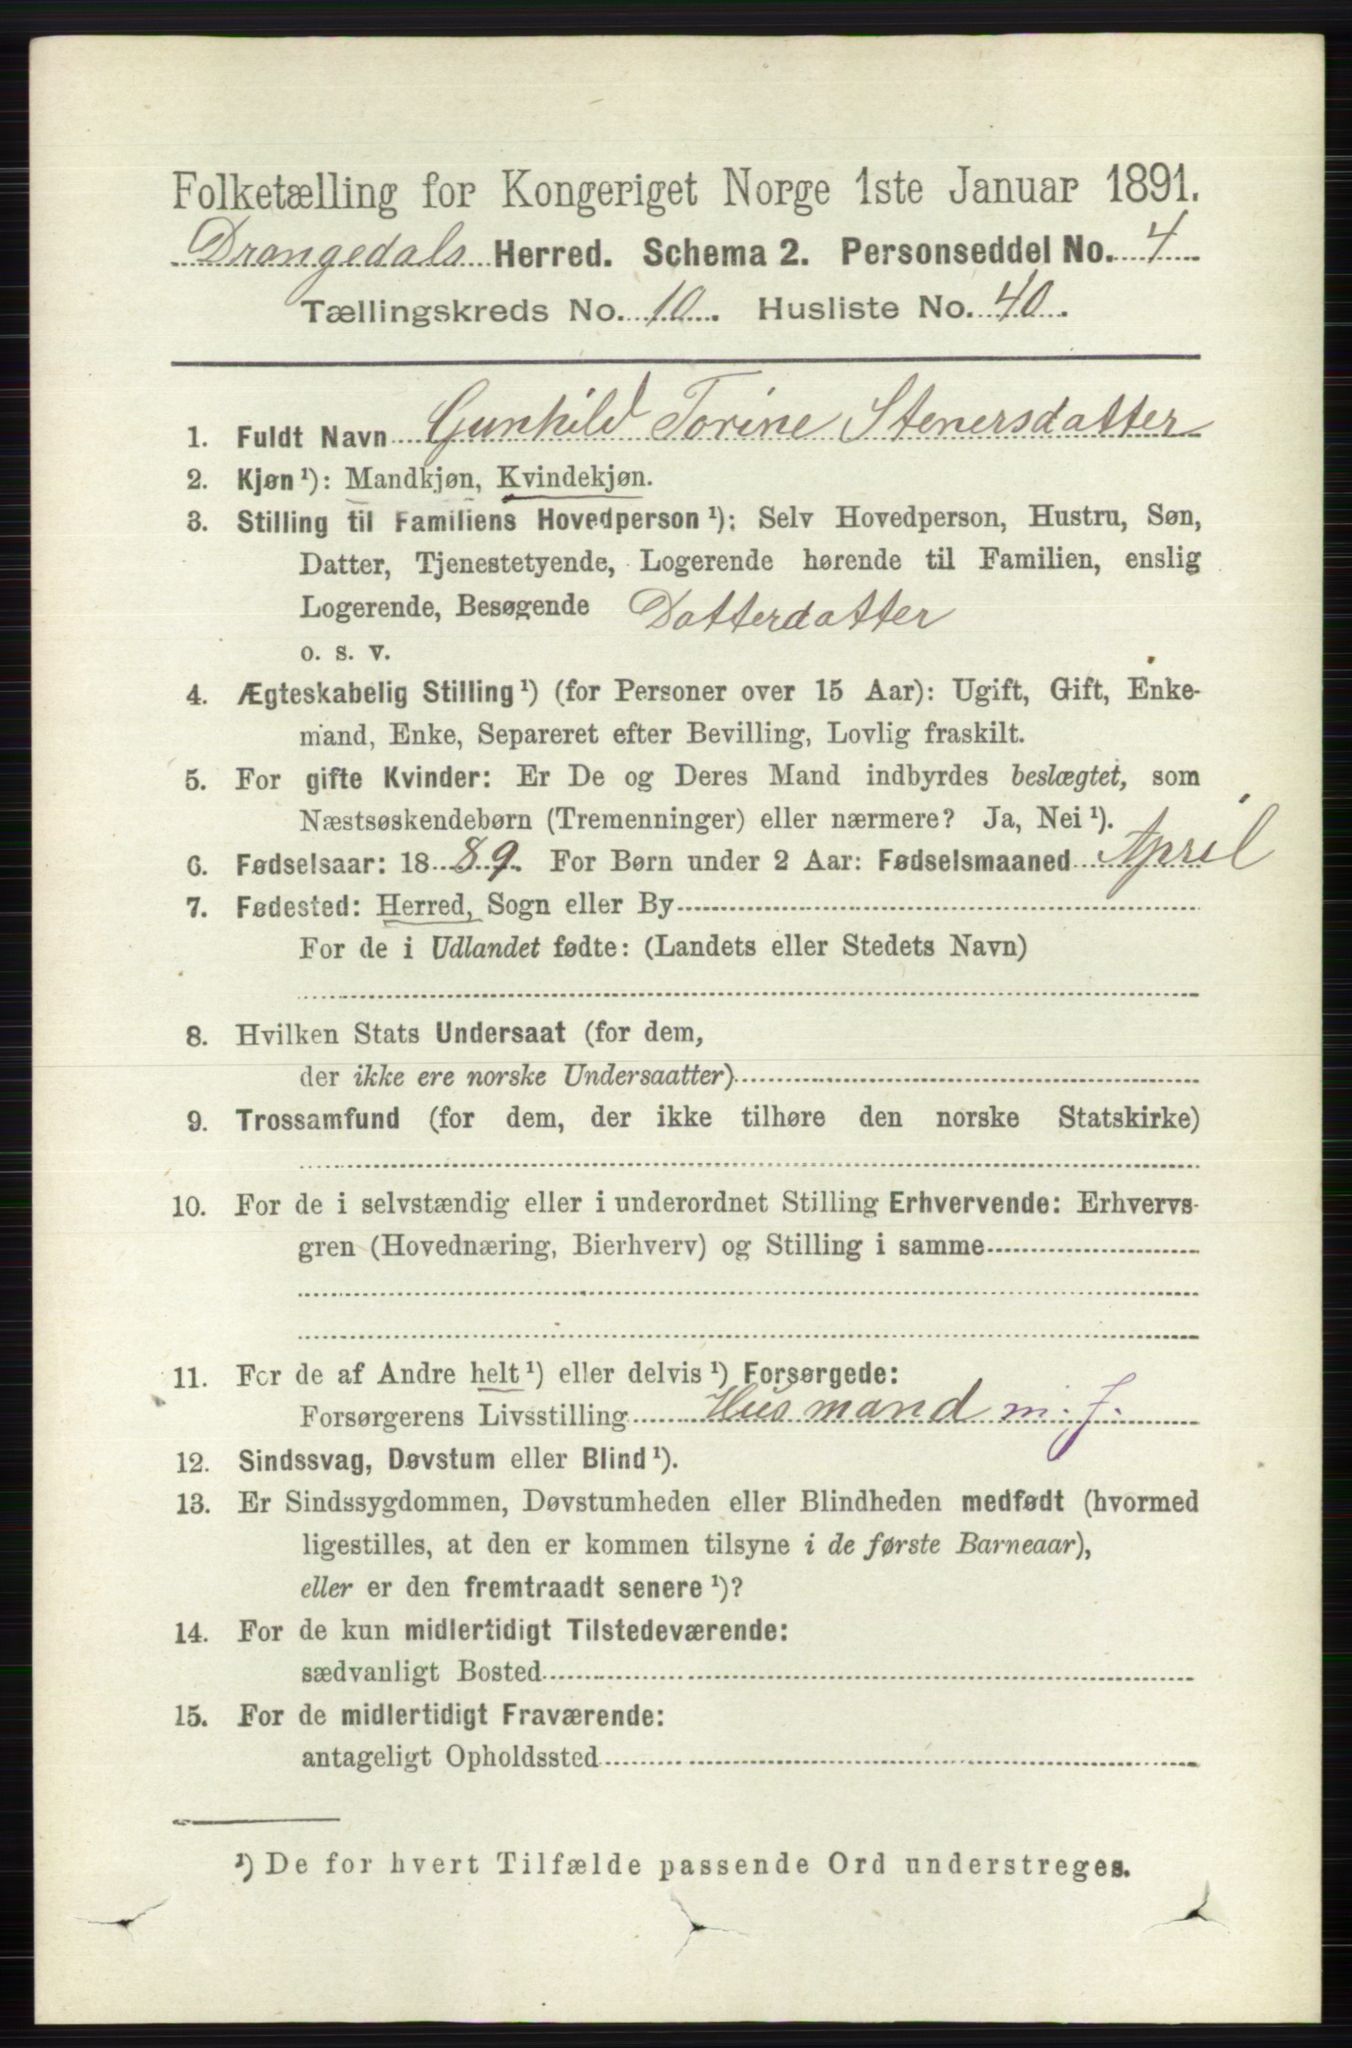 Folketælling for Kongeriget Norge 1ste Januar 1891.
Drangedals Herred. Schema 2. Personseddel No. 4
Tællingskreds No. 10. Husliste No. 40.
1. Fuldt Navn Gunhild Torine Stenersdatter
2. Kjøn ¹): Mandkjøn, Kvindekjøn.
3. Stilling til Familiens Hovedperson ¹): Selv Hovedperson, Hustru, Søn,
Datter, Tjenestetyende, Logerende hørende til Familien, enslig
Logerende, Besøgende Datterdatter
o. s. v.
4. Ægteskabelig Stilling ¹) (for Personer over 15 Aar): Ugift, Gift, Enke-
mand, Enke, Separeret efter Bevilling, Lovlig fraskilt.
5. For gifte Kvinder: Er De og Deres Mand indbyrdes beslægtet, som
Næstsøskendebørn (Tremenninger) eller nærmere? Ja, Nei ¹).
6. Fødselsaar: 1889. For Børn under 2 Aar: Fødselsmaaned April
7. Fødested: Herred, Sogn eller By
For de i Udlandet fødte: (Landets eller Stedets Navn)
8. Hvilken Stats Undersaat (for dem,
der ikke ere norske Undersaatter)
9. Trossamfund (for dem, der ikke tilhøre den norske Statskirke)
10. For de i selvstændig eller i underordnet Stilling Erhvervende: Erhvervs-
gren (Hovednæring, Bierhverv) og Stilling i samme
11. For de af Andre helt ¹) eller delvis ¹) Forsørgede:
Forsørgerens Livsstilling Husmand m. j.
12. Sindssvag, Døvstum eller Blind ¹).
13. Er Sindssygdommen, Døvstumheden eller Blindheden medfødt (hvormed
ligestilles, at den er kommen tilsyne i de første Barneaar),
eller er den fremtraadt senere ¹)?
14. For de kun midlertidigt Tilstedeværende:
sædvanligt Bosted
15. For de midlertidigt Fraværende:
antageligt Opholdssted
¹) De for hvert Tilfælde passende Ord understreges.